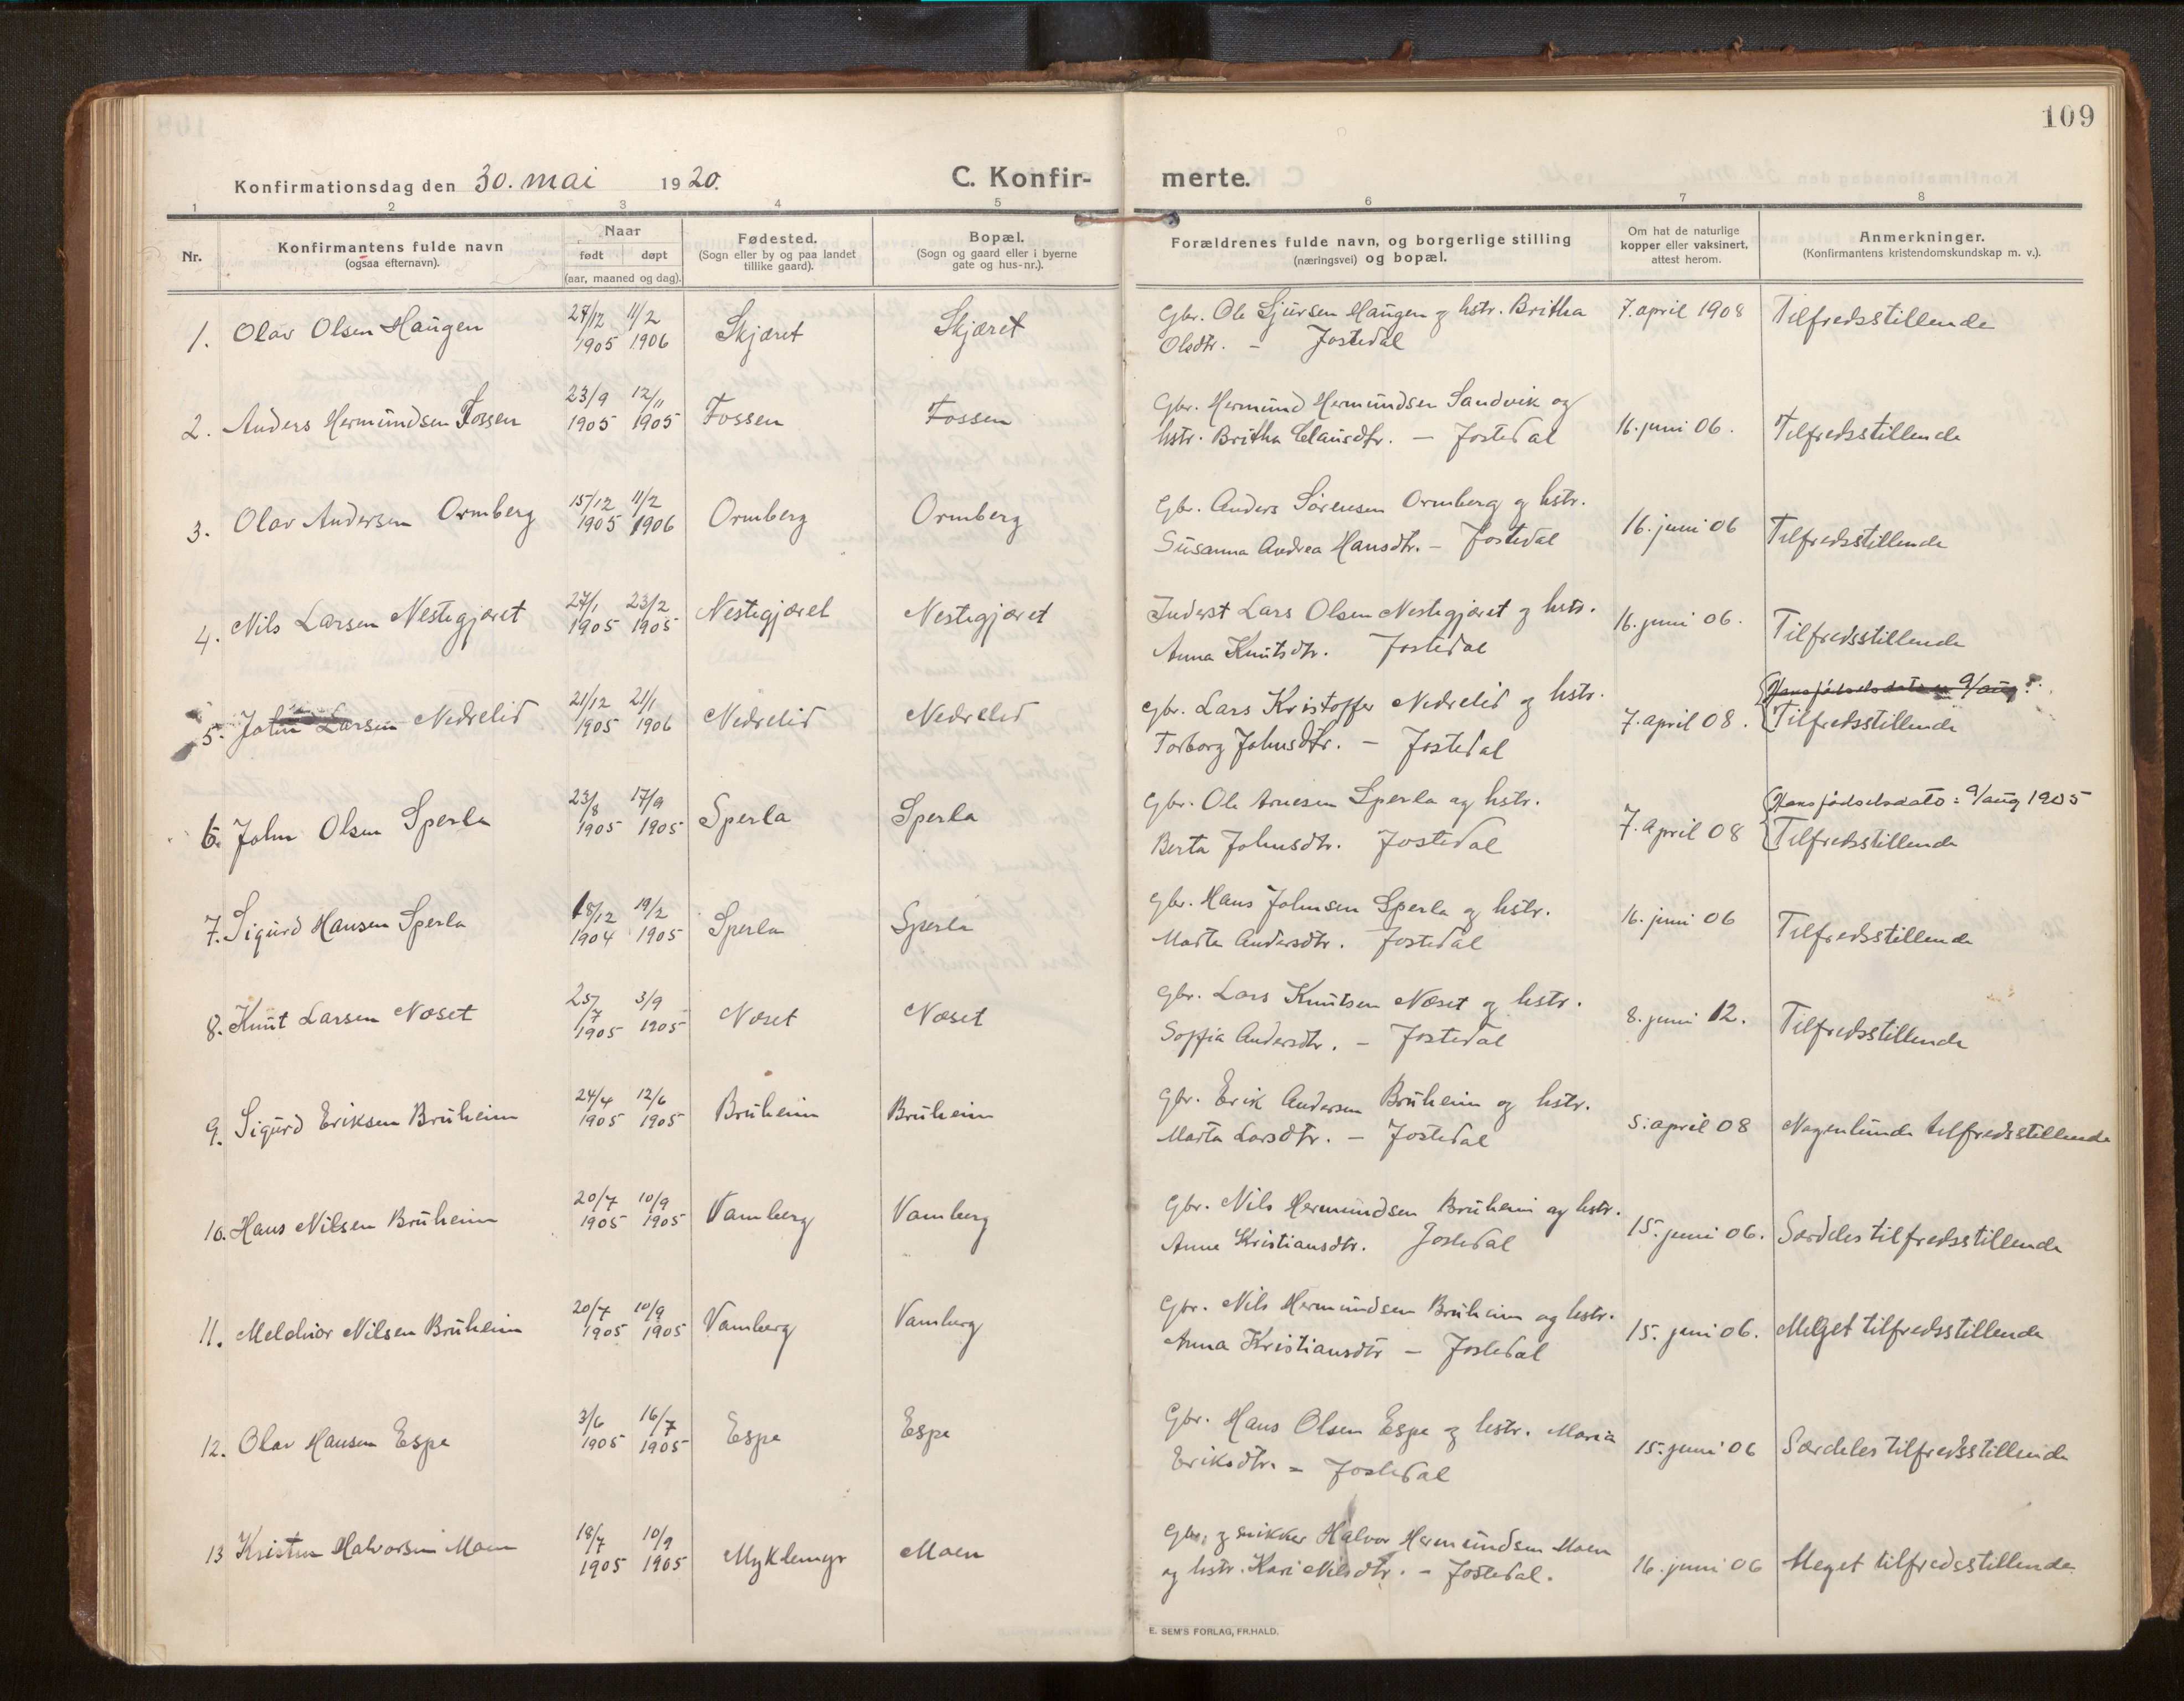 109
Konfirmationsdag den 30. mai 1920.
C. Konfir-
merte.
1 2 3 4 5 6 7 8
Nr.
Konfirmantens fulde navn
(ogsaa efternavn).
Naar
født døpt
(aar, maaned og dag).
Fødested.
(Sogn eller by og paa landet
tillike gaard).
Bopæl.
(Sogn og gaard eller i byerne
gate og hus-nr.).
Forældrenes fulde navn, og borgerlige stilling
(næringsvei) og bopæl.
Om hat de naturlige
kopper eller vaksinert,
attest herom.
Anmerkninger.
(Konfirmantens kristendomskundskap m. v.).
1. Olav Olsen Haugen 27/12 1905 11/2 1906 Skjæret Skjæret Gbr. Ole Sjursen Haugen og hstr. Britha
Olsdtr. - Jostedal 7. april 1908 Tilfredsstillende
2. Anders Hermundsen Fossen 23/9 1905 12/11 1905 Fossen Fossen Gbr. Hermund Hermundsen Sandvik og
hstr. Britha Clausdtr. - Jostedal 16. juni 06. Tilfredsstillende
3. Olav Andersen Ormberg 15/12 1905 11/2 1906 Ormberg Ormberg Gbr. Anders Sørensen Ormberg og hstr.
Susanna Andrea Hansdtr. - Jostedal 16. juni 06 Tilfredsstillende
4. Nils Larsen Nestegjæret 27/1 1905 23/2 1905 Nestegjæret Nestegjæret Inderst Lars Olsen Nestegjæret og hstr.
Anna Knutsdtr. Jostedal 16. juni 06. Tilfredsstillende
5. John Larsen Nedrelid 21/12 1905 21/1 1906 Nedrelid Nedrelid Gbr. Lars Kristoffer Nedrelid og hstr.
Torborg Johnsdtr. - Jostedal 7. april 08. Hans fødselsdato er 9/aug
Tilfredsstillende
6. John Olsen Sperla 23/8 1905 17/9 1905 Sperla Sperla Gbr. Ole Arnesen Sperla og hstr.
Berta Johnsdtr. Jostedal 7. april 08 Hans fødselsdato: 9/aug 1905
Tilfredsstillende
7. Sigurd Hansen Sperla 18/12 1904 19/2 1905 Sperla Sperla Gbr. Hans Johnsen Sperla og hstr.
Marta Andersdtr. Jostedal 16. juni 06 Tilfredsstillende
8. Knut Larsen Næset 25/7 1905 3/9 1905 Næset Næset Gbr. Lars Knutsen Næset og hstr.
Soffia Andersdtr. - Jostedal 8. juni 12. Tilfredsstillende
9. Sigurd Eriksen Bruheim 24/4 1905 12/6 1905 Bruheim Bruheim Gbr. Erik Andersen Bruheim og hstr.
Marta Larsdtr. - Jostedal 5. april 08 Nogenlunde tilfredsstillende
10. Hans Nilsen Bruheim 20/7 1905 10/9 1905 Vamberg Vamberg Gbr. Nils Hermundsen Bruheim og hstr.
Anna Kristiansdtr. Jostedal 15. juni 06. Særdeles tilfredsstillende
11. Melchior Nilsen Bruheim 20/7 1905 10/9 1905 Vamberg Vamberg Gbr. Nils Hermundsen Bruheim og hstr.
Anna Kristiansdtr - Jostedal 15. juni 06. Meget tilfredsstillende
12. Olav Hansen Espe 3/6 1905 16/7 1905 Espe Espe Gbr. Hans Olsen Espe og hstr. Maria
Eriksdtr. - Jostedal 15. juni 06 Særdeles tilfredsstillende
13 Kristen Halvorsen Moen 18/7 1905 10/9 1905 Myklemyr Moen Gbr. og snikker Halvor Hermundsen Moen
og hstr. Kari Nilsdtr. - Jostedal. 16. juni 06 Meget tilfredsstillende
E. SEM'S FORLAG, FR.HALD.